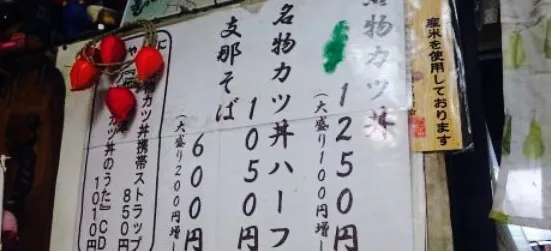 産米を使用しております
名物カツ丼
1250円
(大盛り100円増し
名物カツ丼ハーフ
1050円
支那そば
600円
(大盛り200円増し
物カツ丼携帯ストラップ
850円
カツ丼のうた』CD
1010円